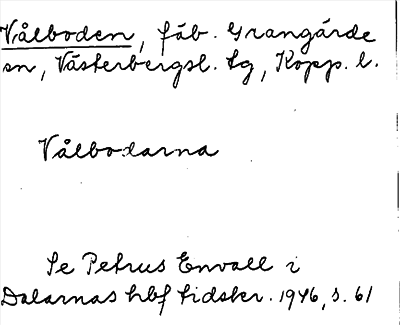 Vålboden, fäb. Grangärde
sn, Västerbergsl. tg, Kopp. l.
Vålbodarna
Se Petrus Envall i
Dalarnas hbf tidskr. 1946, s. 61